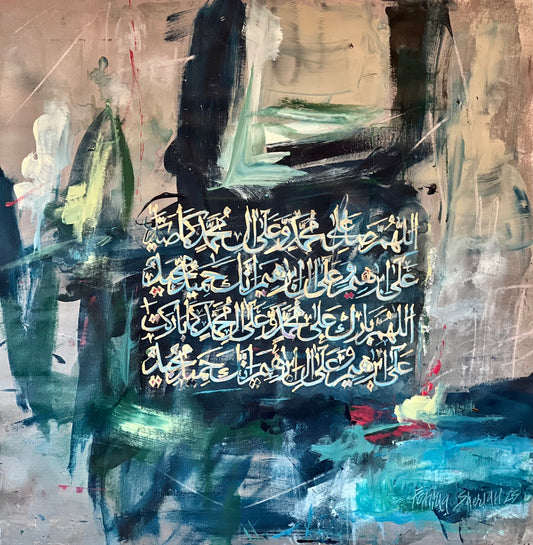 اللهم صل على محمد وعلى ال محمد كما صليت
على ابرهيم وعلى ال ابرهيم انك حميد مجيد
اللهم بارك على محمد وعلى ال محمد كما باركت
على ابرهيم وعلى ال ابرهيم انك حميد مجيد